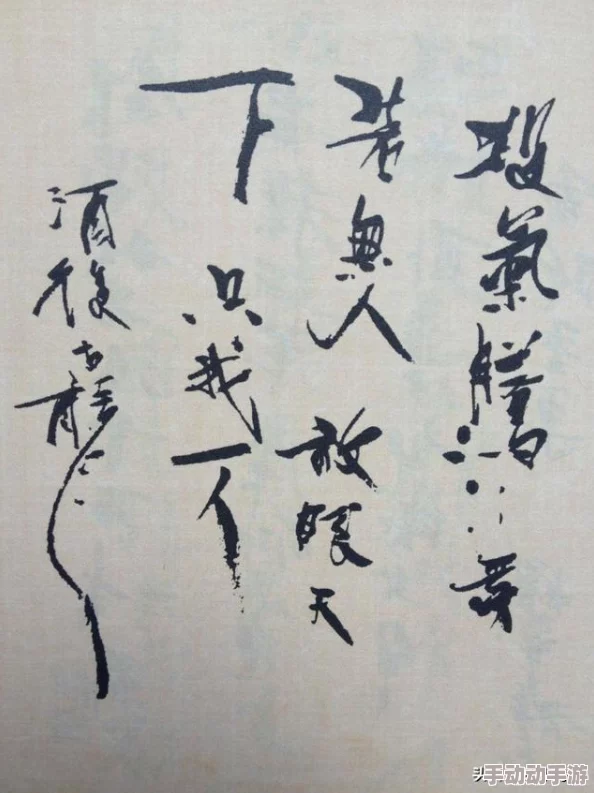 殺氣騰々旁
若無人放眼天
下只我一人
酒後古龍
手动动手游